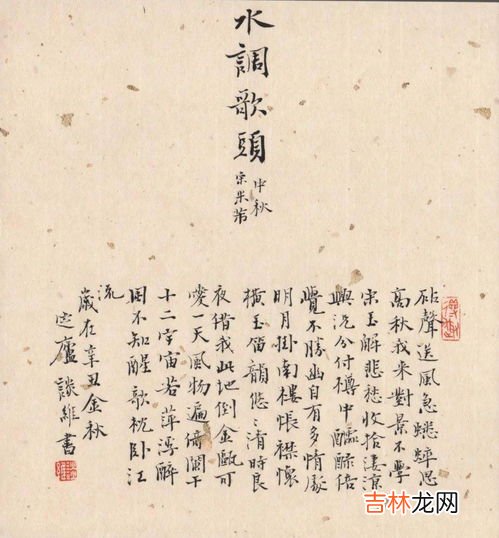 水調歌頭
中秋
宋米芾
砧聲送風急蟋蟀思
高秋我來對景不學
宋玉解悲愁收拾淒涼
興況分付樽中醽醁倍
覺不勝幽自有多情處
明月掛南樓悵襟懷
橫玉笛韻悠〻清時良
夜借我此地倒金甌可
愛一天風物遍倚闌干
十二宇宙若萍浮醉
困不知醒欹枕臥江
流
歲在辛丑金秋
定廬談維書
吉林龙网